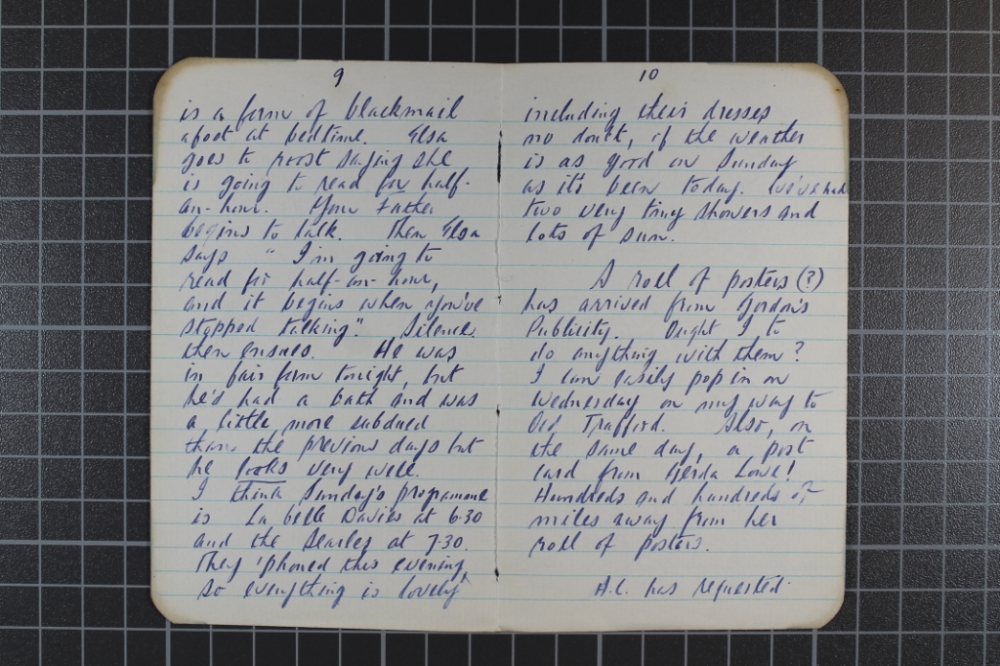 9
is a form of blackmail
afoot at bedtime. Elsa
goes to roost saying she
is going to read for half-
an-hour. Your Father
begins to talk. Then Elsa
says "I'm going to
read for half-an-hour,
and it begins when you've
stopped talking". Silence
then ensues. He was
in fair form tonight, but
he'd had a bath and was
a little more subdued
than the previous days but
he looks very well.
I think Sunday's programme
is La belle Davies at 6.30
and the Searles at 7.30.
They 'phoned this evening
so everything is lovely
10
including their dresses
no doubt, if the weather
is as good on Sunday
as it's been today. We've had
two very tiny showers and
lots of sun.
A roll of posters (?)
has arrived from Gordon's
Publicity. Ought I to
do anything with them?
I can easily pop in on
Wednesday on my way to
Old Trafford. Also, on
the same day, a post
card from Gerda Lowe!
Hundreds and hundreds of
miles away from her
roll of posters.
A.C. has requested